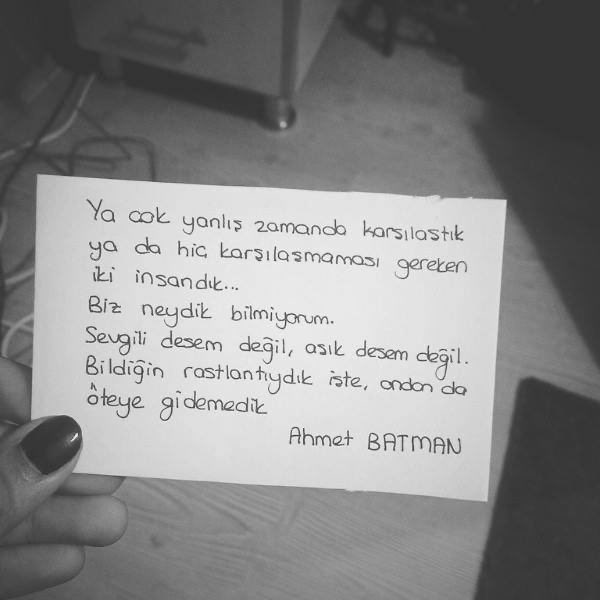 Ya çok yanlış zamanda karşılaştık
ya da hiç karşılaşmaması gereken
iki insandık...
Biz neydik bilmiyorum.
Sevgili desem değil, aşık desem değil.
Bildiğin rastlantıydık işte, ondan da
öteye gidemedik
Ahmet BATMAN